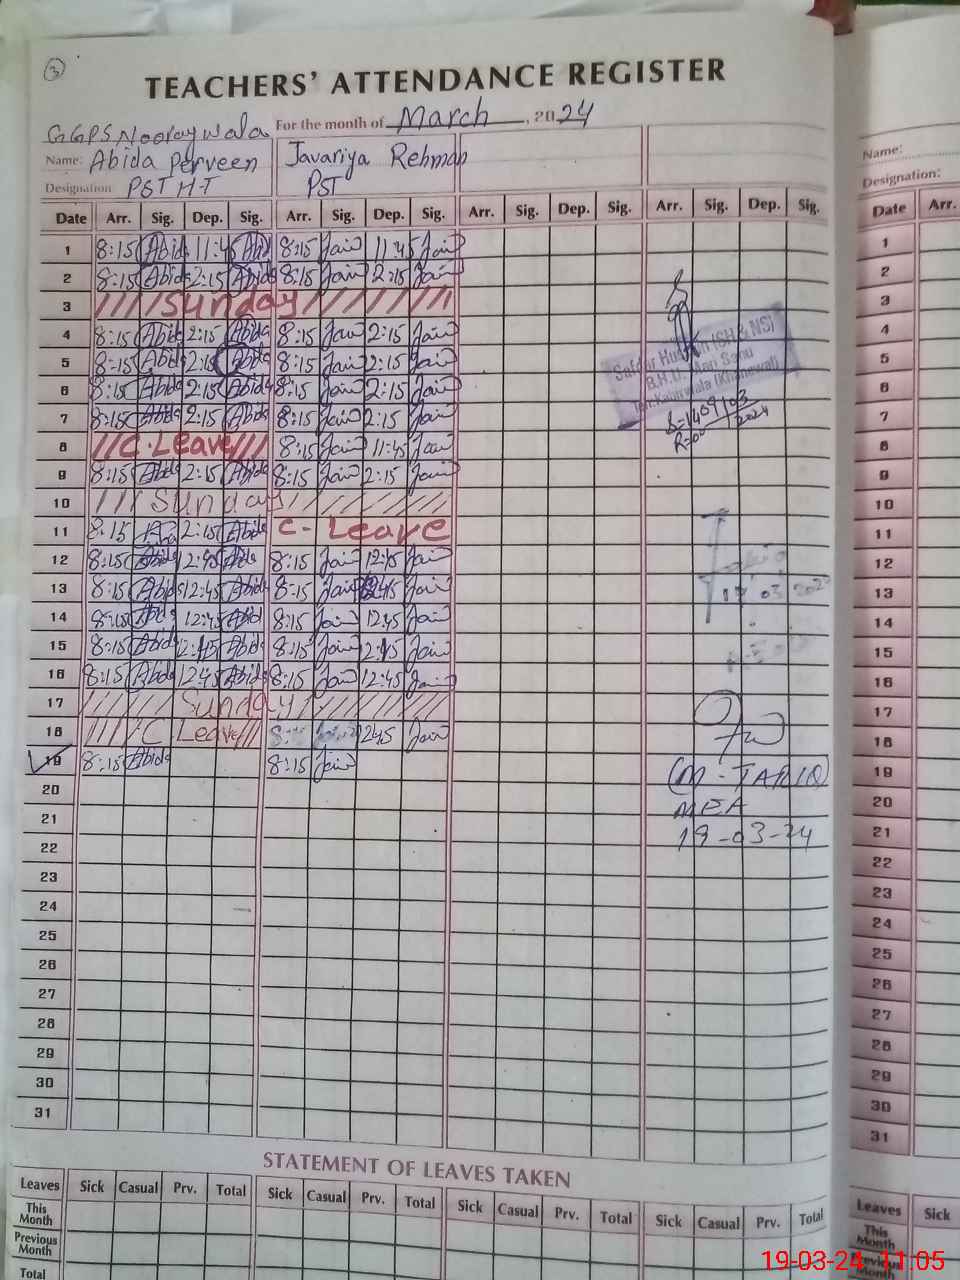 3
TEACHERS' ATTENDANCE REGISTER
GGPS Nooraywala For the month of March, 2024
Name: Abida Perveen Javariya Rehman
Designation PST H-T PST
Date Arr. Sig. Dep. Sig. Arr. Sig. Dep. Sig. Arr. Sig. Dep. Sig. Arr. Sig. Dep. Sig.
1 8:15 Abida 11:45 Abid 8:15 Jair 11:45 Jair
2 8:15 Abida 2:15 Abida 8:15 Jair 2:15 Jair
3 Sunday
4 8:15 Abida 2:15 Abida 8:15 Jair 2:15 Jair
5 8:15 Abida 2:15 Abida 8:15 Jair 2:15 Jair
6 8:15 Abida 2:15 Abida 8:15 Jair 2:15 Jair
7 8:15 Abida 2:15 Abida 8:15 Jair 2:15 Jair
8 C. Leave 8:15 Jair 11:45 Jair
9 8:15 Abida 2:15 Abida 8:15 Jair 2:15 Jair
10 Sunday
11 8:15 2:15 Abida C- Leave
12 8:15 Abida 12:45 Abida 8:15 Jair 12:45 Jair
13 8:15 Abida 12:45 Abida 8:15 Jair 12:45 Jair
14 8:15 Abida 12:45 Abid 8:15 Jair 12:45 Jair
15 8:15 Abida 12:45 Abida 8:15 Jair 12:45 Jair
16 8:15 Abida 12:45 Abida 8:15 Jair 12:45 Jair
17 Sunday
18 C Leave 1245 Jair
19 8:15 Abida 8:15 Jair
20
21
22
23
24
25
26
27
28
29
30
31
Safdar Hussain (SH & NS)
B.H.U.
(Khanewal)
2024
(M-TARIQ)
MEA
19-03-24
STATEMENT OF LEAVES TAKEN
Leaves Sick Casual Prv. Total Sick Casual Prv. Total Sick Casual Prv. Total Sick Casual Prv. Total
This Month
Previous Month
Total
Name:
Designation:
Date Arr.
1
2
3
4
5
6
7
8
9
10
11
12
13
14
15
16
17
18
19
20
21
22
23
24
25
26
27
28
29
30
31
Leaves Sick
This Month
Previous Month
Total
19-03-24 11:05